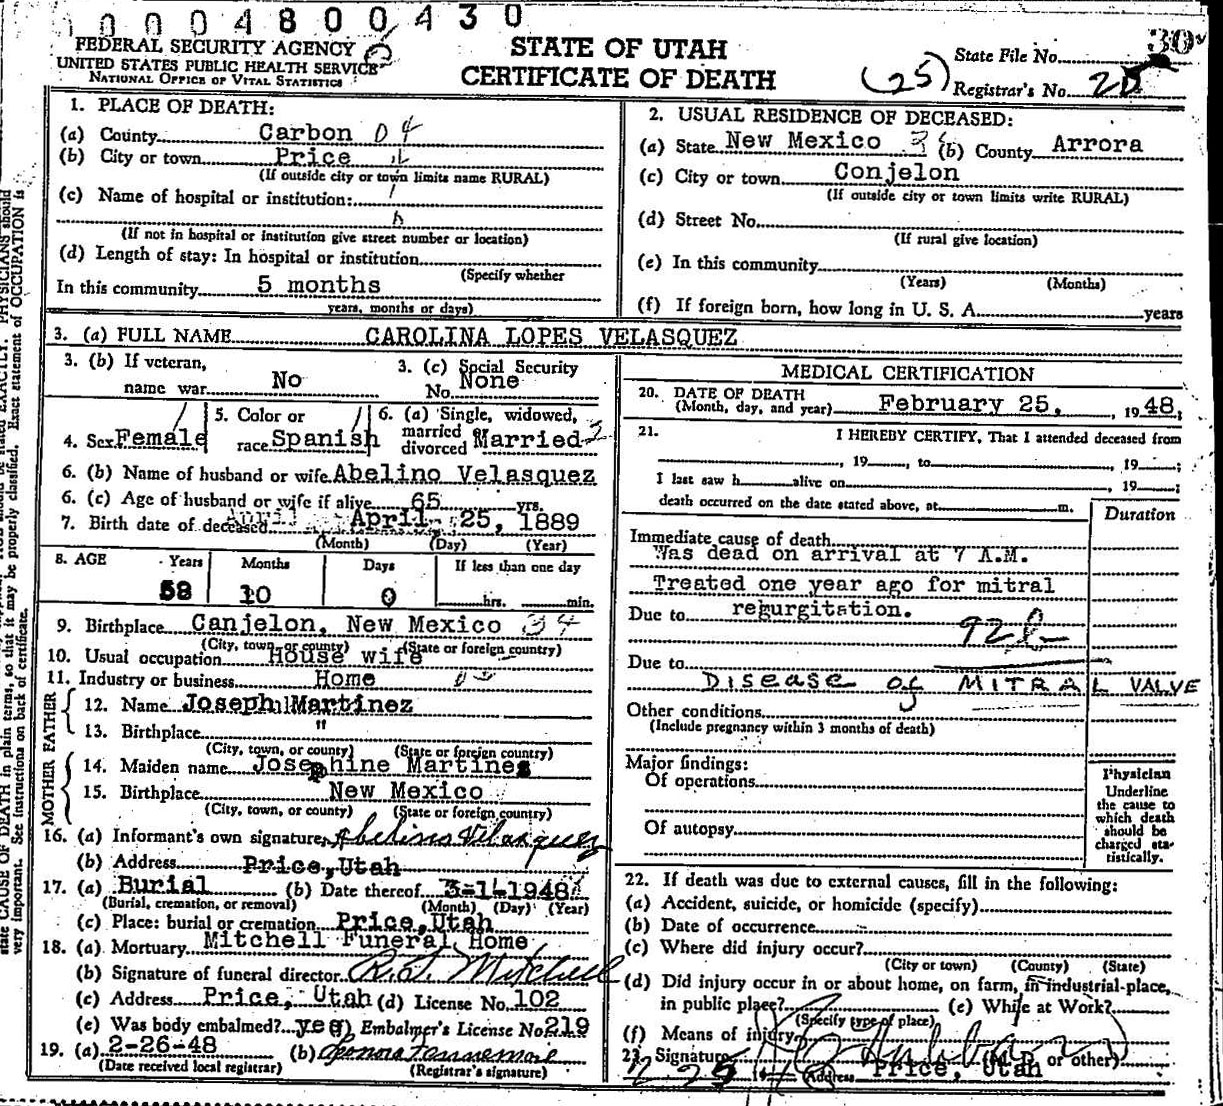 0004800430
FEDERAL SECURITY AGENCY
UNITED STATES PUBLIC HEALTH SERVICE
NATIONAL OFFICE OF VITAL STATISTICS
STATE OF UTAH
CERTIFICATE OF DEATH
(25)
State File No. 30
Registrar's No. 20
1. PLACE OF DEATH:
(a) County Carbon 04
(b) City or town Price
(If outside city or town limits name RURAL)
(c) Name of hospital or institution:
(If not in hospital or institution give street number or location)
(d) Length of stay: In hospital or institution
(Specify whether
In this community 5 months
years, months or days)
2. USUAL RESIDENCE OF DECEASED:
(a) State New Mexico (b) County Arrora
(c) City or town Conjelon
(If outside city or town limits write RURAL)
(d) Street No.
(If rural give location)
(e) In this community
(Years) (Months)
(f) If foreign born, how long in U. S. A. years
3. (a) FULL NAME CAROLINA LOPES VELASQUEZ
3. (b) If veteran, name war No
3. (c) Social Security No. None
4. Sex Female
5. Color or race Spanish
6. (a) Single, widowed, married or divorced Married
6. (b) Name of husband or wife Abelino Velasquez
6. (c) Age of husband or wife if alive 65 yrs.
7. Birth date of deceased April 25, 1889
(Month) (Day) (Year)
8. AGE Years Months Days If less than one day
58 10 0 hrs. min.
9. Birthplace Canjelon, New Mexico 34
(City, town, or county) (State or foreign country)
10. Usual occupation House wife
11. Industry or business Home
FATHER
12. Name Joseph Martinez
13. Birthplace "
(City, town, or county) (State or foreign country)
MOTHER
14. Maiden name Josephine Martines
15. Birthplace New Mexico
(City, town, or county) (State or foreign country)
16. (a) Informant's own signature Abelino Velasquez
(b) Address Price, Utah
17. (a) Burial (b) Date thereof 3-1-1948
(Burial, cremation, or removal) (Month) (Day) (Year)
(c) Place: burial or cremation Price, Utah
18. (a) Mortuary Mitchell Funeral Home
(b) Signature of funeral director Mitchell
(c) Address Price, Utah (d) License No. 102
(e) Was body embalmed? yes Embalmer's License No 219
19. (a) 2-26-48 (b)
(Date received local registrar) (Registrar's signature)
MEDICAL CERTIFICATION
20. DATE OF DEATH
(Month, day, and year) February 25, , 1948;
21. I HEREBY CERTIFY, That I attended deceased from
, 19 , to , 19 ;
I last saw h alive on , 19 ;
death occurred on the date stated above, at m.
Duration
Immediate cause of death
Was dead on arrival at 7 A.M.
Treated one year ago for mitral
Due to regurgitation.
92b
Due to
DISEASE of MITRAL VALVE
Other conditions
(Include pregnancy within 3 months of death)
Major findings:
Of operations
Of autopsy
Physician
Underline
the cause to
which death
should be
charged sta-
tistically.
22. If death was due to external causes, fill in the following:
(a) Accident, suicide, or homicide (specify)
(b) Date of occurrence
(c) Where did injury occur?
(City or town) (County) (State)
(d) Did injury occur in or about home, on farm, in industrial-place,
in public place? (e) While at Work?
(Specify type of place)
(f) Means of injury
23. Signature (M.D. or other)
Address Price, Utah
state CAUSE OF DEATH in plain terms, so that it may be properly classified. Exact statement of OCCUPATION is
very important. See instructions on back of certificate.